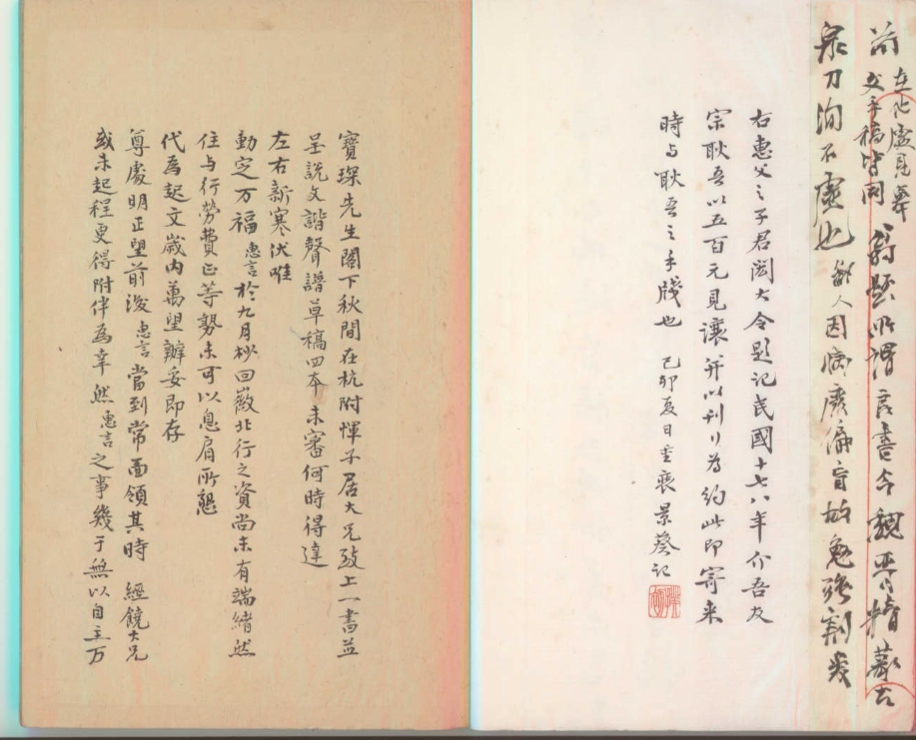 在他處見舞
前父手稿皆同 翁題所謂言書合魏晋精歌去
泉刀洵不虛也 鄙人因病廢偏盲故勉強割愛
右惠父之子君閎大令題記民國十七八年介吾友
宗耿吾以五百元見讓并以刊行為約此即寄來
時与耿吾之手牋也 己卯夏日重裝景葵記
寶琛先生閣下秋間在杭附惲子居大兄致上一書並
呈說文諧聲譜草稿四本未審何時得達
左右新寒伏惟
動定万福惠言於九月杪回徽北行之資尚未有端緒然
住与行勞費正等勢未可以息肩所懇
代為起文歲内萬望辦妥即存
尊處明正望前後惠言當到常面領其時 經饒大兄
或未起程更得附伴為幸然惠言之事幾于無以自主万